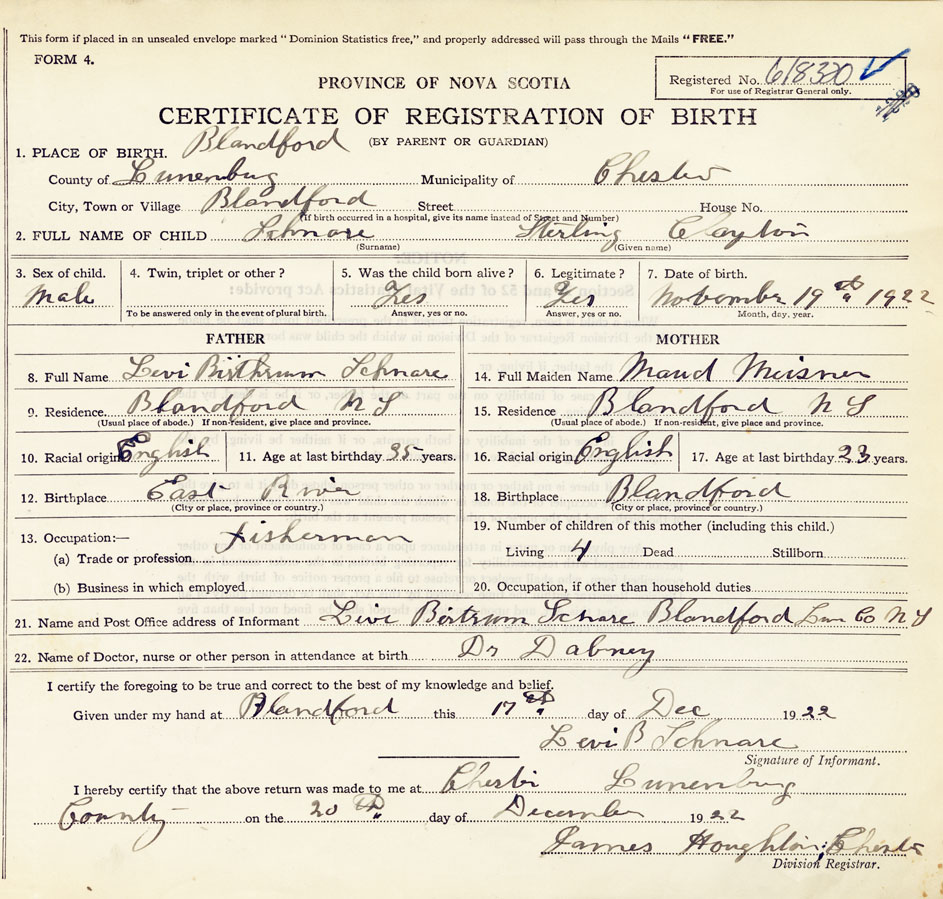 This form if placed in an unsealed envelope marked "Dominion Statistics free," and properly addressed will pass through the Mails "FREE."
FORM 4.
Registered No. 618320
For use of Registrar General only.
PROVINCE OF NOVA SCOTIA
CERTIFICATE OF REGISTRATION OF BIRTH
(BY PARENT OR GUARDIAN)
1. PLACE OF BIRTH. Blandford
County of Lunenburg Municipality of Chester
City, Town or Village Blandford Street House No.
(If birth occurred in a hospital, give its name instead of Street and Number)
2. FULL NAME OF CHILD Schnare Sterling Clayton
(Surname) (Given name)
3. Sex of child. 4. Twin, triplet or other? 5. Was the child born alive? 6. Legitimate? 7. Date of birth.
Male Yes Yes November 19th 1922
To be answered only in the event of plural birth. Answer, yes or no. Answer, yes or no. Month, day, year.
FATHER MOTHER
8. Full Name Levi Birthrum Schnare 14. Full Maiden Name Maud Meisner
9. Residence. Blandford N S 15. Residence Blandford N S
(Usual place of abode.) If non-resident, give place and province. (Usual place of abode.) If non-resident, give place and province.
10. Racial origin English 11. Age at last birthday 35 years. 16. Racial origin English 17. Age at last birthday 23 years.
12. Birthplace East River 18. Birthplace Blandford
(City or place, province or country.) (City or place, province or country.)
13. Occupation:— Fisherman 19. Number of children of this mother (including this child.)
(a) Trade or profession Living 4 Dead Stillborn
(b) Business in which employed 20. Occupation, if other than household duties
21. Name and Post Office address of Informant Levi Birtrum Schnare Blandford Lun Co N S
22. Name of Doctor, nurse or other person in attendance at birth Dr Dabney
I certify the foregoing to be true and correct to the best of my knowledge and belief.
Given under my hand at Blandford this 17th day of Dec 1922
Levi B Schnare
Signature of Informant.
I hereby certify that the above return was made to me at Chester Lunenburg
County on the 20th day of December 1922
James Houghton, Chester
Division Registrar.